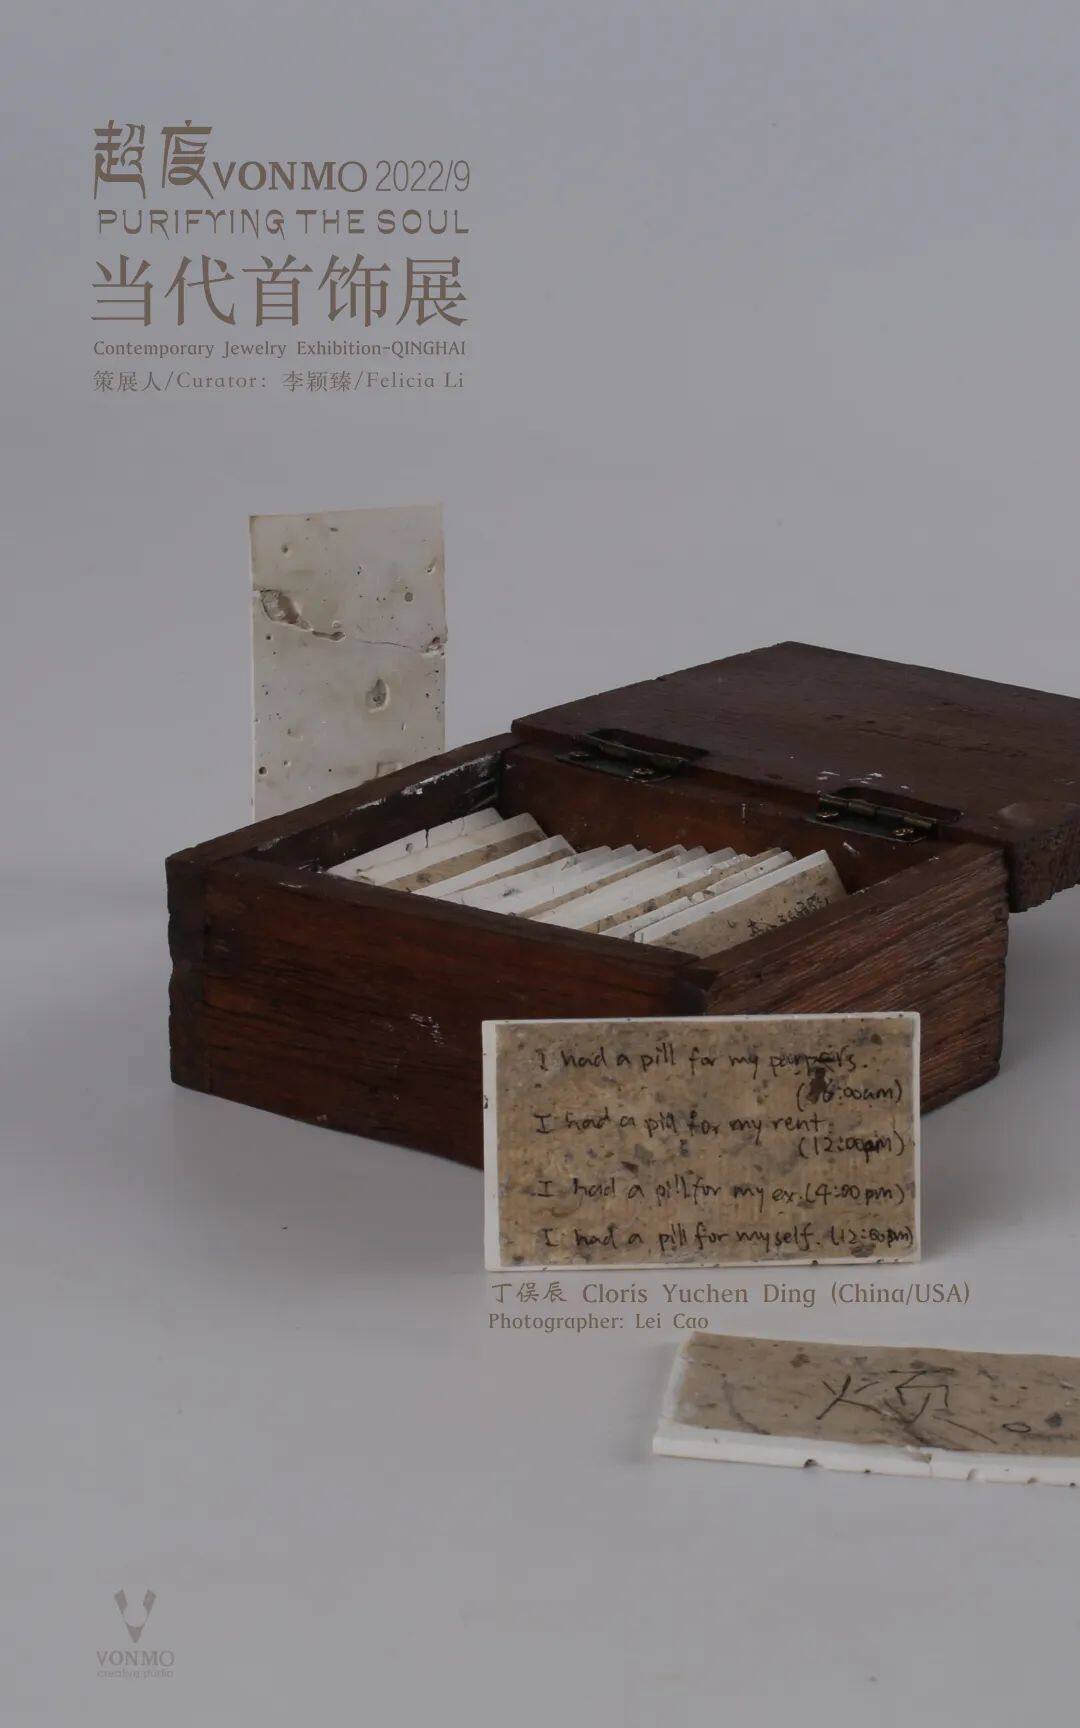 超度VONMO 2022/9
PURIFYING THE SOUL
当代首饰展
Contemporary Jewelry Exhibition-QINGHAI
策展人/Curator: 李颖臻/Felicia Li
I had a pill for my
(6:00am)
I had a pill for my rent.
(12:00pm)
I had a pill for my ex. (4:00pm)
I had a pill for myself. (12:00pm)
丁俣辰 Cloris Yuchen Ding (China/USA)
Photographer: Lei Cao
烦。
VONMO
creative studio